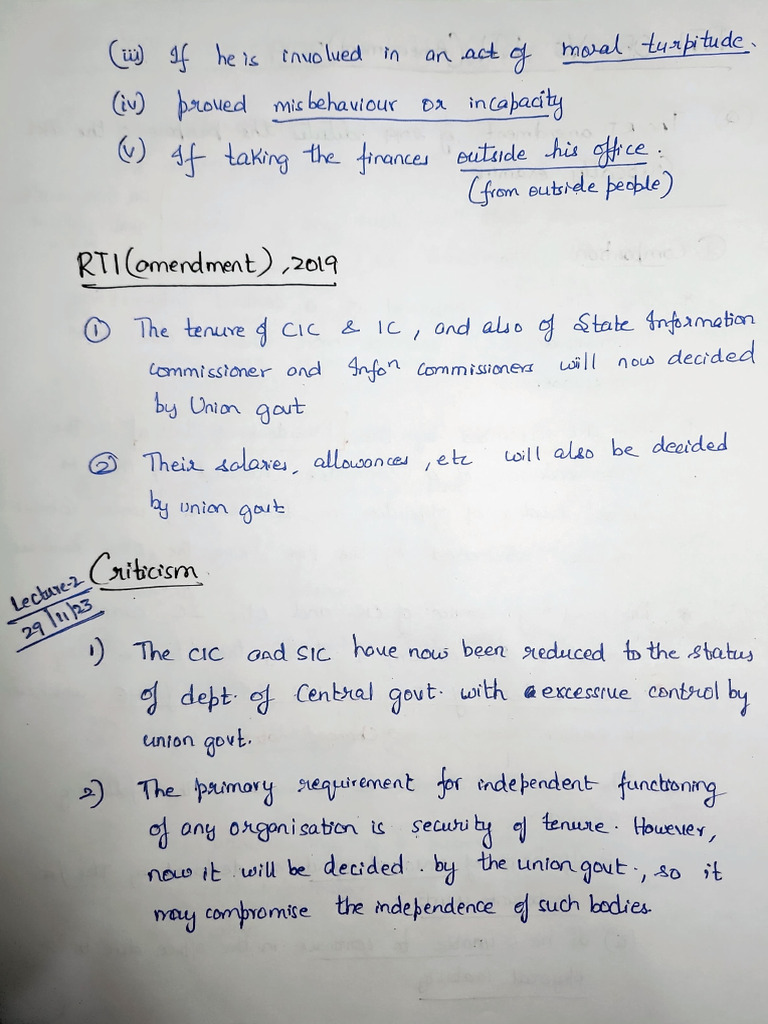 (iii) If he is involved in an act of moral turpitude.
(iv) proved misbehaviour or incapacity
(v) If taking the finances outside his office.
(from outside people)
RTI (amendment), 2019
① The tenure of CIC & IC, and also of State Information
commissioner and Infoⁿ commissioners will now decided
by Union govt
② Their salaries, allowances, etc will also be decided
by union govt
Lecture-2
29/11/23
Criticism
1) The CIC and SIC have now been reduced to the status
of dept. of Central govt. with excessive control by
union govt.
2) The primary requirement for independent functioning
of any organisation is security of tenure. However,
now it will be decided. by the union govt., so it
may compromise the independence of such bodies.